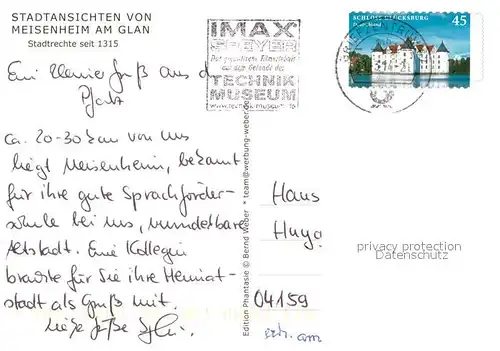 STADTANSICHTEN VON
MEISENHEIM AM GLAN
Stadtrechte seit 1315
IMAX
SPEYER
Der gigantische Filmerlebnis
auf dem Gelände des
TECHNIK
MUSEUM
www.technik-museum.de
SCHLOSS GLÜCKSBURG
45
Deutschland
BRIEFZENTRUM
Ein kleiner Gruß aus d
Pfalz
ca. 20-30 km von uns
liegt Meisenheim, bekannt
für ihre gute Sprachförder-
schule bei uns, wunderbare
Altstadt. Eine Kollegin
brachte für Sie ihre Heimat-
stadt als Gruß mit.
Liebe Grüße
Edition Phantasie © Bernd Weber * team@werbung-weber.de *
Hans
Hugo
privacy protection
Datenschutz
04159